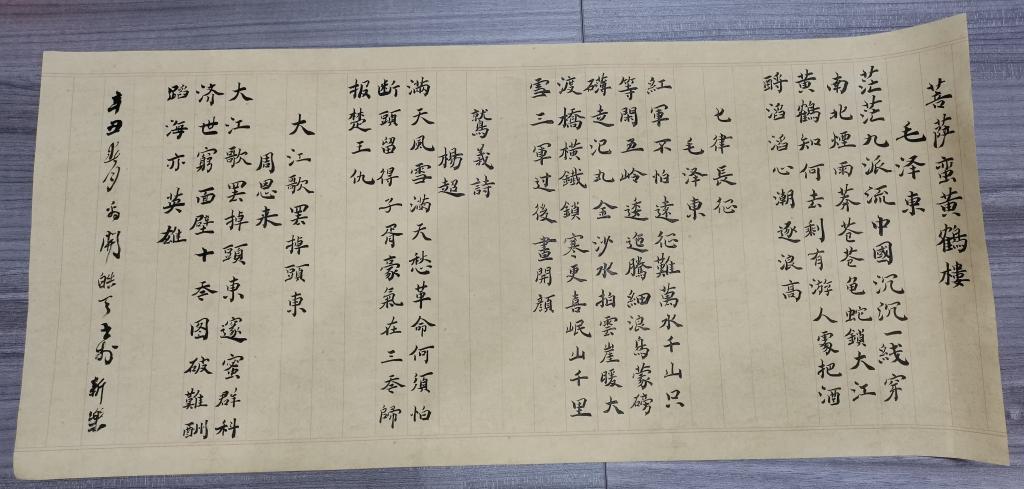 菩萨蛮黄鹤樓
毛泽東
茫茫九派流中國沉沉一线穿
南北煙雨莽苍苍龟蛇鎖大江
黄鶴知何去剩有游人處把酒
酹滔滔心潮逐浪高
七律長征
毛泽東
紅軍不怕遠征難萬水千山只
等閑五岭逶迤騰細浪烏蒙磅
礴走汜丸金沙水拍雲崖暖大
渡橋横鐵鎖寒更喜岷山千里
雪三軍过後盡開顔
鷲義詩
楊超
满天風雪满天愁革命何須怕
断頭留得子胥豪氣在三叁歸
报楚王仇
大江歌罢掉頭東
周恩来
大江歌罢掉頭東邃蜜群科
济世窮面壁十叁图破難酬
蹈海亦英雄
辛丑